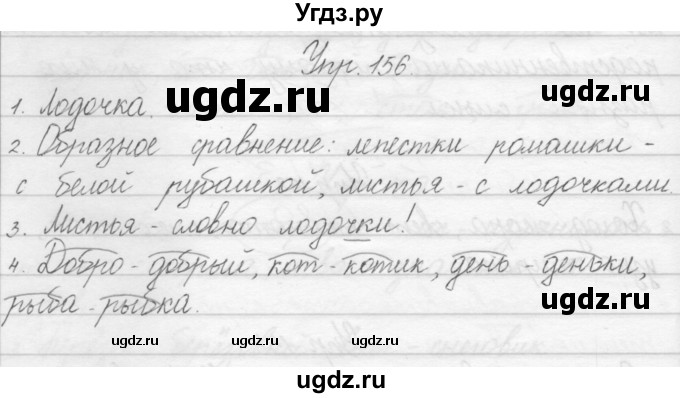 Угдз.ру
Упр. 156
1. Лодочка.
2. Образное сравнение: лепестки ромашки -
с белой рубашкой, листья - с лодочками.
3. Листья - словно лодочки!
4. Добро - добрый, кот - котик, день - деньки,
рыба - рыбка.
ugdz.ru
ugdz.ru
ugdz.ru
ugdz.ru
ugdz.ru
ugdz.ru
ugdz.ru
ugdz.ru